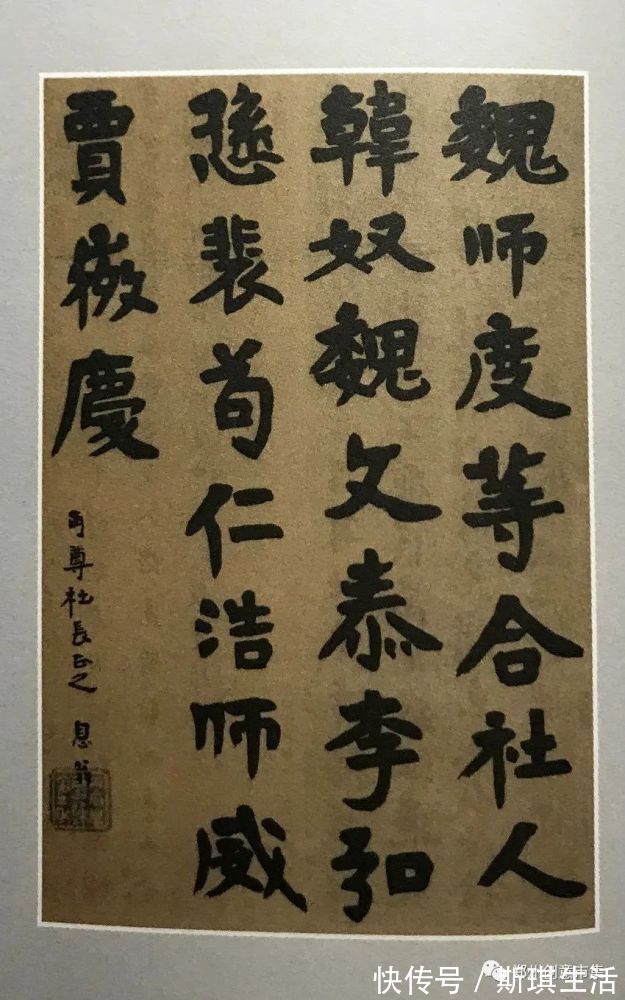 魏师度等合社人
韓奴魏文泰李弘
愻裴苟仁浩师威
賈嶶慶
角尊社長正之 息翁
郑州创意市集
快传号／斯琪生活